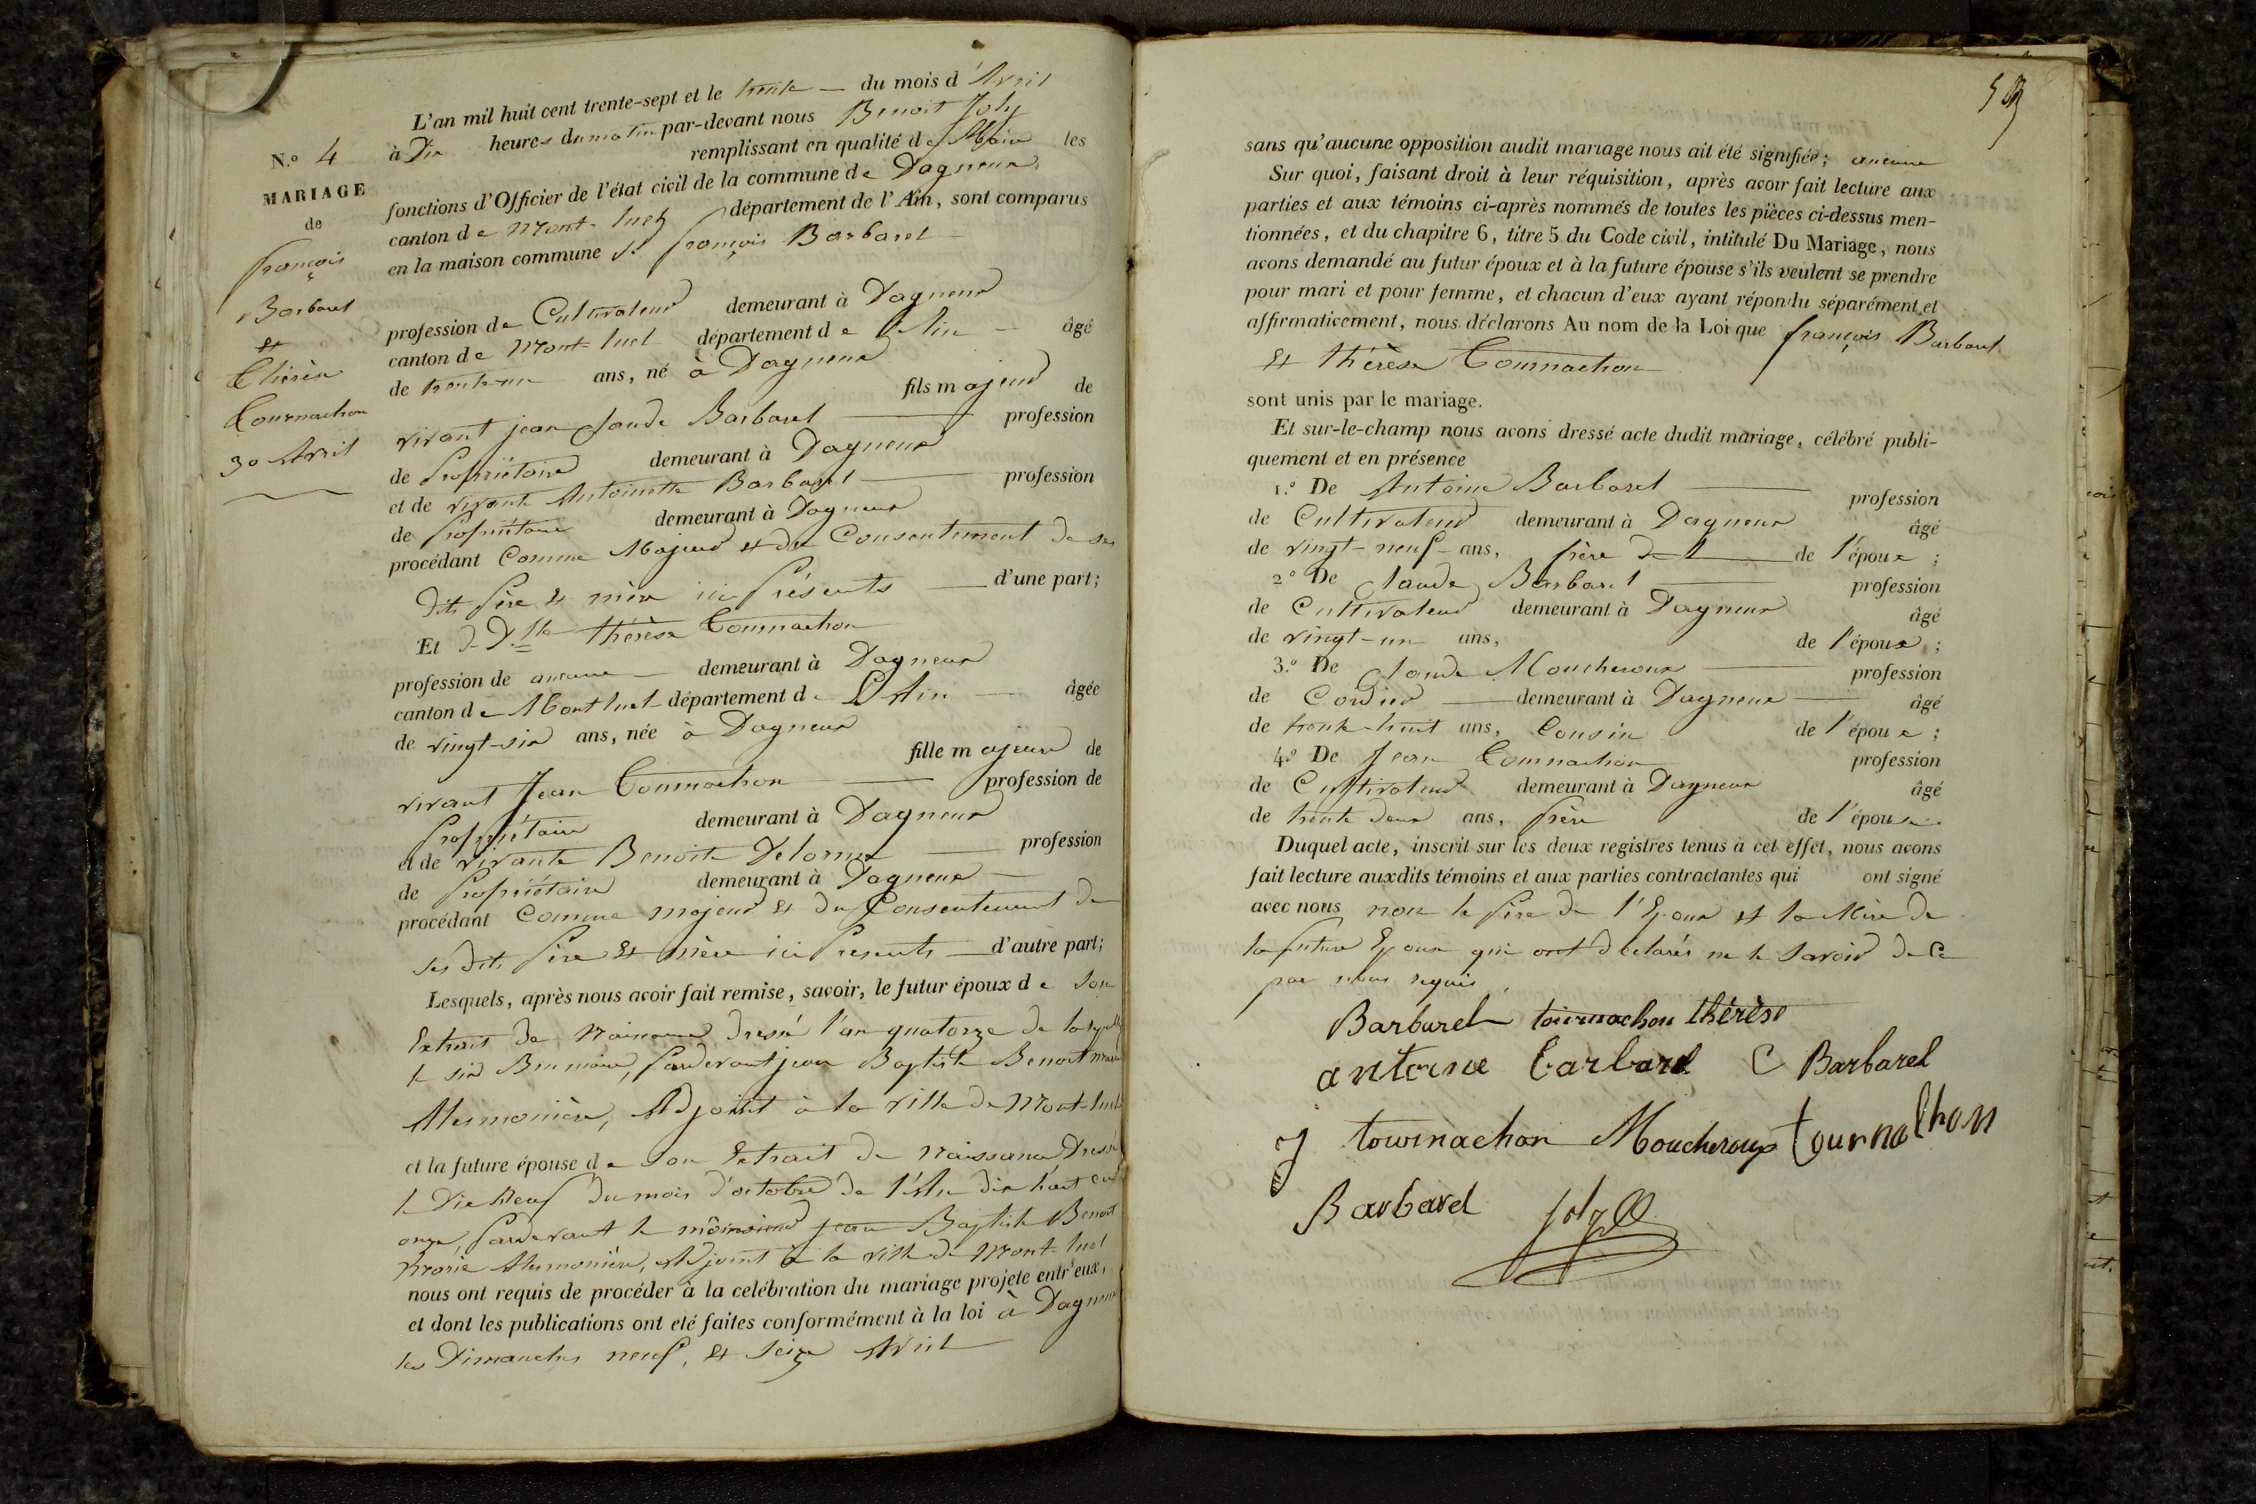 N.º 4
MARIAGE
de
françois
Barbaret
et
Thérèse
Tournachon
30 Avril
L'an mil huit cent trente-sept et le trente du mois d'Avril
à Dix heures du matin par-devant nous Benoit Joly
remplissant en qualité de Maire les
fonctions d'Officier de l'état civil de la commune de Dagneux
canton de Mont-luel département de l'Ain, sont comparus
en la maison commune Sr. françois Barbaret
profession de Cultivateur demeurant à Dagneux
canton de Mont-luel département de l'Ain âgé
de trente-un ans, né à Dagneux
fils majeur de
vivant jean Claude Barbaret profession
de Propriétaire demeurant à Dagneux
et de vivante Antoinette Barbaret profession
de Propriétaire demeurant à Dagneux
procédant Comme Majeur et du Consentement de ses
dits Père et mère ici Présents d'une part;
Et de Dlle Thérèse Tournachon
profession de aucune demeurant à Dagneux
canton de Montluel département de L'Ain âgée
de vingt-six ans, née à Dagneux
fille majeure de
vivant Jean Tournachon profession de
Propriétaire demeurant à Dagneux
et de vivante Benoite Delorme profession
de Propriétaire demeurant à Dagneux
procédant Comme majeur et du Consentement de
ses dits Père et Mère ici Presents d'autre part;
Lesquels, après nous avoir fait remise, savoir, le futur époux de Son
Extrait de Naissance dressé l'an quatorze de la
le six Brumaire, Pardevant jean Baptiste Benoit marie
Alesmonière, Adjoint à la ville de Mont-luel
et la future épouse de Son Extrait de Naissance Dressé
le Dix Neuf du mois d'octobre de l'An dix huit cent
onze, Pardevant le même sieur jean Baptiste Benoit
Marie Alesmonière, Adjoint à la ville de Mont-luel
nous ont requis de procéder à la celébration du mariage projete entr'eux,
et dont les publications ont eté faites conformément à la loi à Dagneux
les Dimanches neuf, et Seize Avril
59
sans qu'aucune opposition audit mariage nous ait été signifiée; aucune
Sur quoi, faisant droit à leur réquisition, après avoir fait lecture aux
parties et aux témoins ci-après nommés de toutes les pièces ci-dessus men-
tionnées, et du chapitre 6, titre 5 du Code civil, intitulé Du Mariage, nous
avons demandé au futur époux et à la future épouse s'ils veulent se prendre
pour mari et pour femme, et chacun d'eux ayant répondu séparément et
affirmativement, nous déclarons Au nom de la Loi que françois Barbaret
et thérèse Tournachon
sont unis par le mariage.
Et sur-le-champ nous avons dressé acte dudit mariage, célébré publi-
quement et en présence
1.º De Antoine Barbaret profession
de Cultivateur demeurant à Dagneux âgé
de vingt-neuf ans, frère de l'époux ;
2º De Claude Barbaret profession
de Cultivateur demeurant à Dagneux âgé
de vingt-un ans, de l'époux ;
3.º De Claude Moucheroux profession
de Cordier demeurant à Dagneux âgé
de trente-huit ans, Cousin de l'époux ;
4.º De Jean Tournachon profession
de Cultivateur demeurant à Dagneux âgé
de trente deux ans, frère de l'épouse
Duquel acte, inscrit sur les deux registres tenus à cet effet, nous avons
fait lecture auxdits témoins et aux parties contractantes qui ont signé
avec nous non le Père de l'Epoux et la Mère de
la future Epouse qui ont déclarés ne le Savoir de Ce
par nous requis
Barbarel tournachon thérèse
antoine barbarel C Barbarel
J tournachon Moucheroux tournachon
Barbarel Joly